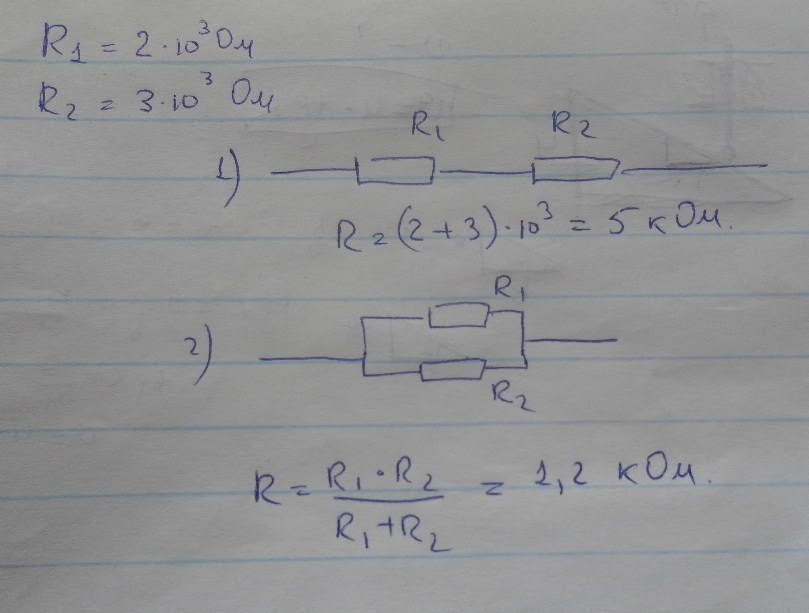 R₁ = 2·10³ Ом
R₂ = 3·10³ Ом
R₁ R₂
1)
R = (2+3)·10³ = 5 кОм.
R₁
2)
R₂
R = R₁·R₂ / R₁+R₂ = 1,2 кОм.